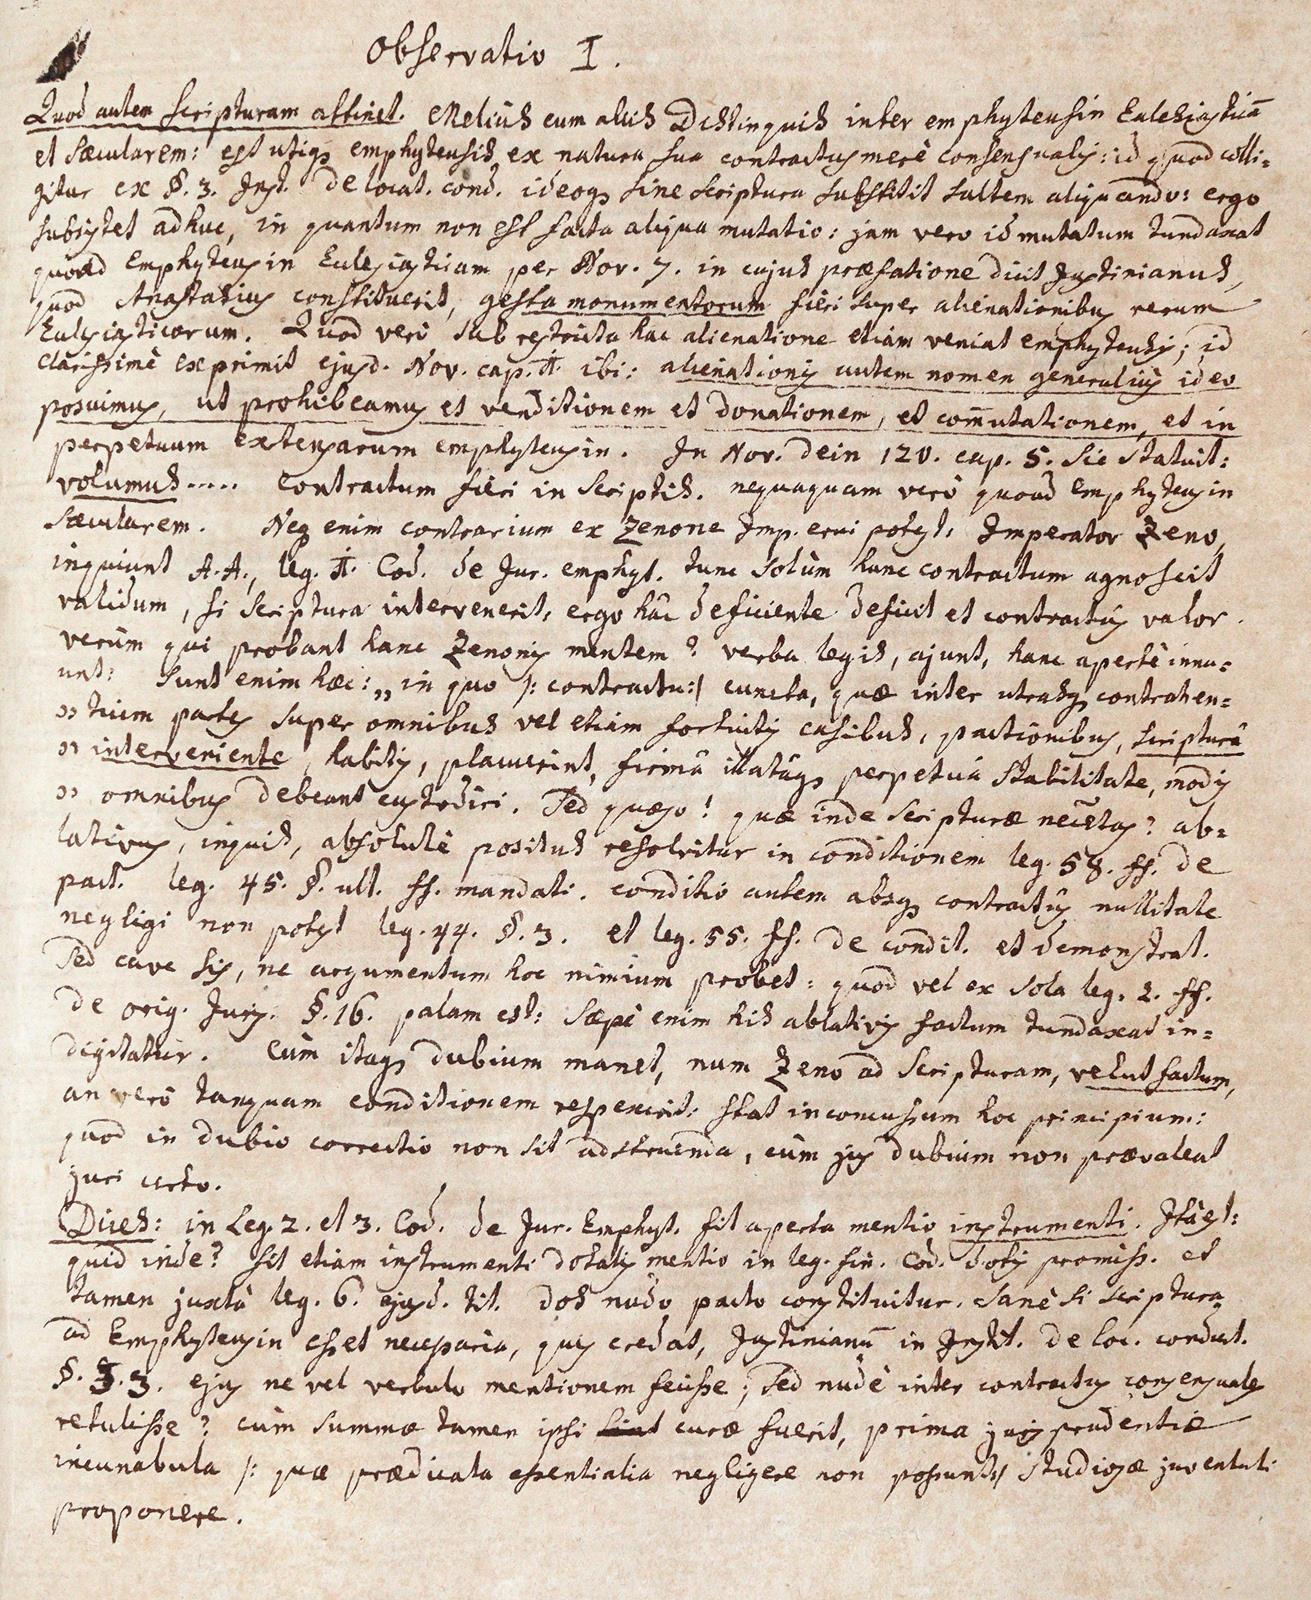 Observatio I.
Quod autem scripturam attinet. Melius cum aliis Distinguis inter emphyteusin Eclesiasticā
et Sæcularem: est utiqȝ emphyteusis ex natura sua contractus merè consensualis: id quod colli=
gitur ex §. 3. Inst. De locat. cond. ideoqȝ sine scriptura substitit saltem aliquando: ergo
subsistet adhuc, in quantum non est facta aliqua mutatio: jam vero id mutatum dundaxat
quoad Emphyteusin Eclesiasticam per Nov. 7. in cujus præfatione dicit Justinianus,
quod Anastasius constituerit, gesta monumentorum fieri super alienationibus rerum
Eclesiasticorum. Quod verò sub restricta hac alienatione etiam veniat emphyteusis; id
clarissimè exprimit ejusd. Nov. cap. 1. ibi: alienationis autem nomen generalius ideo
posuimus, ut prohibeamus et venditionem et donationem, et com̄utationem, et in
perpetuum extensarum emphyteusin. In Nov. dein 120. cap. 5. sic statuit:
volumus..... contractum fieri in scriptis. nequaquam verò quoad emphyteusin
Sæcularem. Neqȝ enim contrarium ex Zenone Imp. erui potest. Imperator Zeno,
inquiunt A.A., leg. 1. Cod. de Jur. emphyt. tunc solùm hunc contractum agnoscit
validum, si scriptura intervenerit, ergo hâc deficiente deficit et contractus valor.
verùm qui probant hanc Zenonis mentem? verba legis, ajunt, hanc apertè innu=
unt: Sunt enim hæc: „ in quo /: contractu:/ cuncta, quæ inter utrasqȝ contrahen=
„ tium partes super omnibus vel etiam fortuitis casibus, pactionibus, scripturâ
„ interveniente, habitis, placuerint, firmâ illatâqȝ perpetuâ stabilitate, modis
„ omnibus debeant custodiri. Sed quæso! quæ inde scripturæ necēstas? ab=
lativus, inquis, absolutè positus resolvitur in conditionem leg. 58. ff. de
pact. leg. 45. §. ult. ff. mandati. conditio autem absqȝ contractus nullitate
negligi non potest leg. 44. §. 3. et leg. 55. ff. de condit. et demonstrat.
Sed cave sis, ne argumentum hoc nimium probet: quod vel ex sola leg. 2. ff.
de orig. Juris. §. 16. palam est: Sæpè enim his ablativis factum dundaxat in=
digitatur. Cùm itaqȝ dubium manet, num Zeno ad scripturam, velut factum,
an verò tanquam conditionem respexerit: stat inconcussum hoc principium:
quod in dubio correctio non sit adstruenda, cùm jus dubium non prævaleat
juri certo.
Dices: in Leg. 2. et 3. Cod. de Jur. Emphyt. fit aperta mentio instrumenti. Ità est:
quid inde? fit etiam instrumenti dotalis mentio in leg. fin. Cod. dotis promiss. et
tamen juxtà leg. 6. ejusd. tit. dos nudo pacto constituitur. Sanè si scriptura
ad Emphyteusin esset necessaria, quis credat, Justinianū in Instit. De loc. conduct.
§. 3. ejus ne vel verbulo mentionem fecisse; sed nudè inter contractus consensuales
retulisse? cùm summæ tamen ipsi curæ fuerit, prima jurisprudentiæ
incunabula /: quæ prædicata essentialia negligere non possunt:/ studiosæ juventuti
proponere.